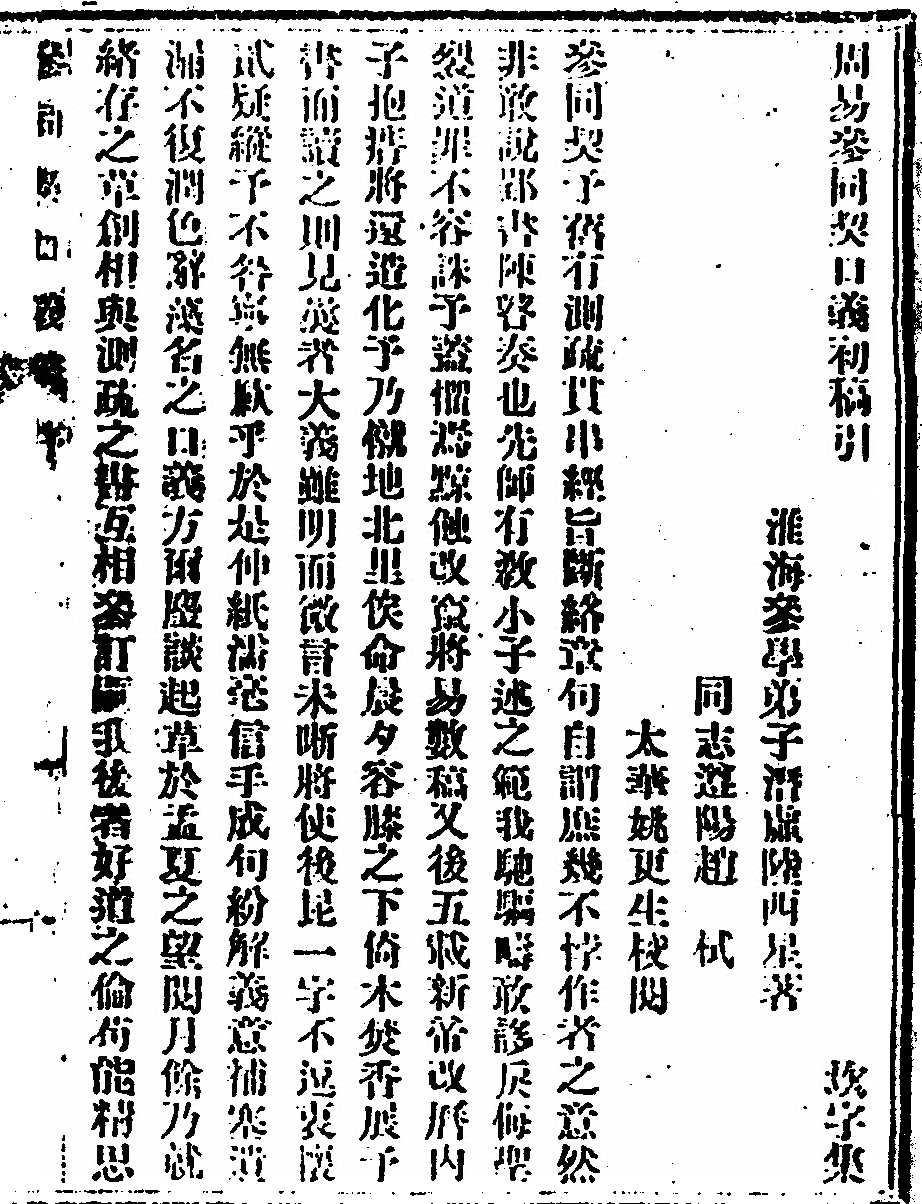 周易參同契口義初稿引
淮海參學弟子潛虛陸西星著
同志遼陽趙栻
太華姚更生校閱
參同契予舊有測疏貫串經旨斷絡章句自謂庶幾不悖作者之意然
非敢說郢書陳咎奏也先師有教小子述之範我馳驅疇敢詭戾侮聖
裂道罪不容誅予蓋憪焉黥他改竄將易數稿又後五載新帝改曆內
子抱痾將還造化予乃僦地北里俟命晨夕容膝之下倚木焚香展予
書而讀之則見夫者大義雖明而微言未晰將使後昆一字不逗衷懷
貳疑縱予不咎寧無歉乎於是伸紙濡毫信手成句紛解義意補塞遺
漏不復潤色辭藻名之口義方爾塵談起草於孟夏之望閱月餘乃就
緒存之草創相與測疏之辭互相參訂嗣我後者好道之倫尚能精思